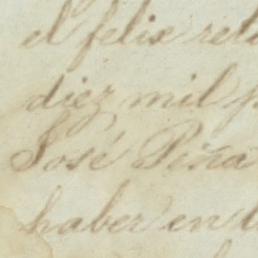 el felix
diez mil
José Piña
haber en